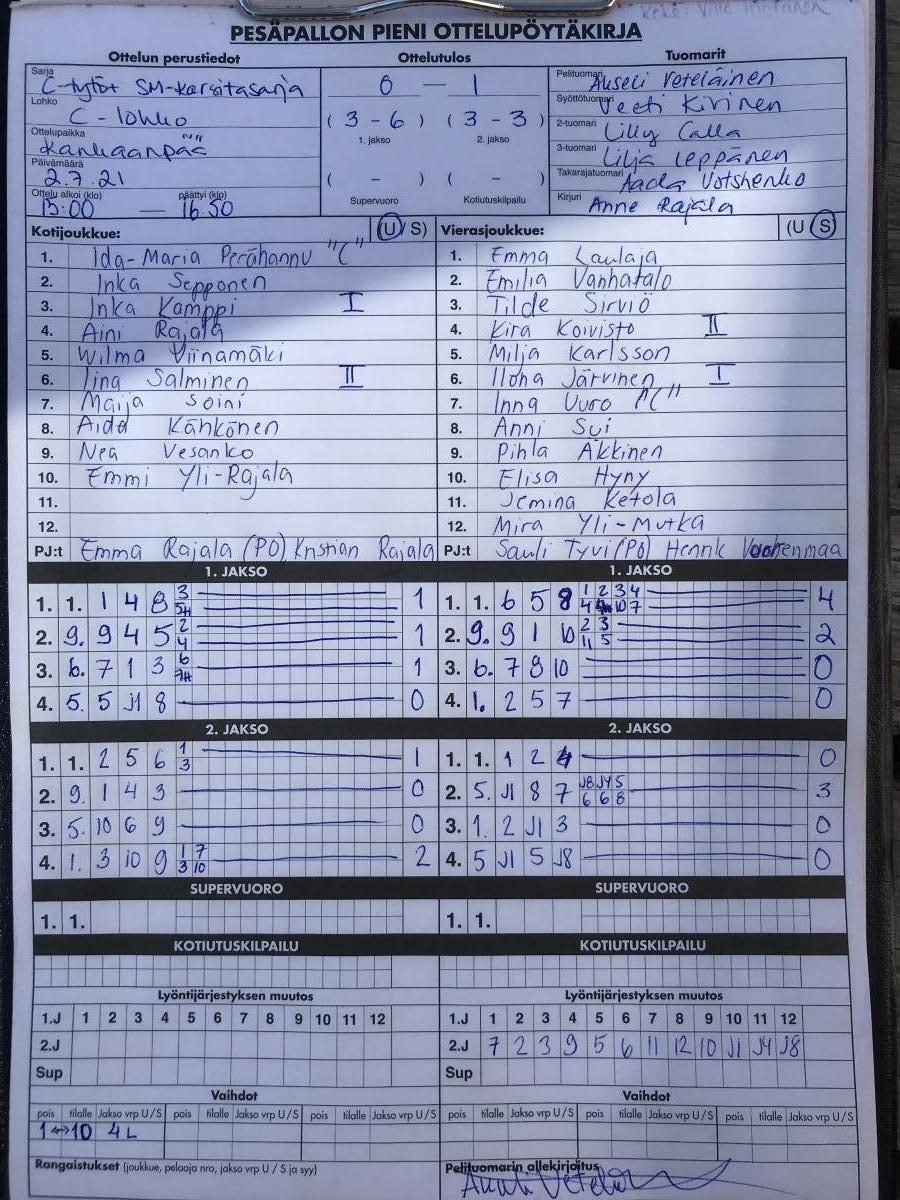 PESÄPALLON PIENI OTTELUPÖYTÄKIRJA
Ottelun perustiedot Ottelutulos Tuomarit
Sarja C-tytöt SM-karsintasarja
Lohko C - lohko
Ottelupaikka Kankaanpää
Päivämäärä 2.7.21
Ottelu alkoi (klo) päättyi (klo)
15:00 — 16.50
0 — 1
( 3 - 6 ) ( 3 - 3 )
1. jakso 2. jakso
( - ) ( - )
Supervuoro Kotiutuskilpailu
Pelituomari Akseli Veteläinen
Syöttötuomari Veeti Kivinen
2-tuomari Lilly Calla
3-tuomari Lilja Leppänen
Takarajatuomari Aada Votshenko
Kirjuri Anne Rajala
Kotijoukkue: (U/S)
1. Ida-Maria Perähannu "C"
2. Inka Sepponen
3. Inka Kamppi I
4. Aini Rajala
5. Wilma Viinamäki
6. Iina Salminen II
7. Maija Soini
8. Aida Kähkönen
9. Nea Vesanko
10. Emmi Yli-Rajala
11.
12.
PJ:t Emma Rajala (PO) Kristian Rajala
Vierasjoukkue: (U/S)
1. Emma Laulaja
2. Emilia Vanhatalo
3. Tilde Sirviö
4. Kira Koivisto II
5. Milja Karlsson
6. Ilona Järvinen I
7. Inna Uuro "C"
8. Anni Sui
9. Pihla Äkkinen
10. Elisa Hyny
11. Jemina Ketola
12. Mira Yli-Mutka
PJ:t Sauli Tyvi (PO) Henrik
1. JAKSO
1. 1. 1 4 8 3 1
2. 9. 9 4 5 2 4 1
3. 6. 7 1 3 6 1
4. 5. 5 J1 8 0
2. JAKSO
1. 1. 2 5 6 1 3 1
2. 9. 1 4 3 0
3. 5. 10 6 9 0
4. 1. 3 10 9 1 7 3 10 2
SUPERVUORO
1. 1.
KOTIUTUSKILPAILU
Lyöntijärjestyksen muutos
1.J 1 2 3 4 5 6 7 8 9 10 11 12
2.J
Sup
Vaihdot
pois tilalle Jakso vrp U/S pois tilalle Jakso vrp U/S pois tilalle Jakso vrp U/S
1↔10 4L
Rangaistukset (joukkue, pelaaja nro, jakso vrp U / S ja syy)
1. JAKSO
1. 1. 6 5 8 1 2 3 4 4 10 7 4
2. 9. 9 1 10 2 3 11 5 2
3. 6. 7 8 10 0
4. 1. 2 5 7 0
2. JAKSO
1. 1. 1 2 4 0
2. 5. J1 8 7 J8 J4 5 6 6 8 3
3. 1. 2 J1 3 0
4. 5 J1 5 J8 0
SUPERVUORO
1. 1.
KOTIUTUSKILPAILU
Lyöntijärjestyksen muutos
1.J 1 2 3 4 5 6 7 8 9 10 11 12
2.J 7 2 3 9 5 6 11 12 10 J1 J4 J8
Sup
Vaihdot
pois tilalle Jakso vrp U/S pois tilalle Jakso vrp U/S pois tilalle Jakso vrp U/S
Pelituomarin allekirjoitus